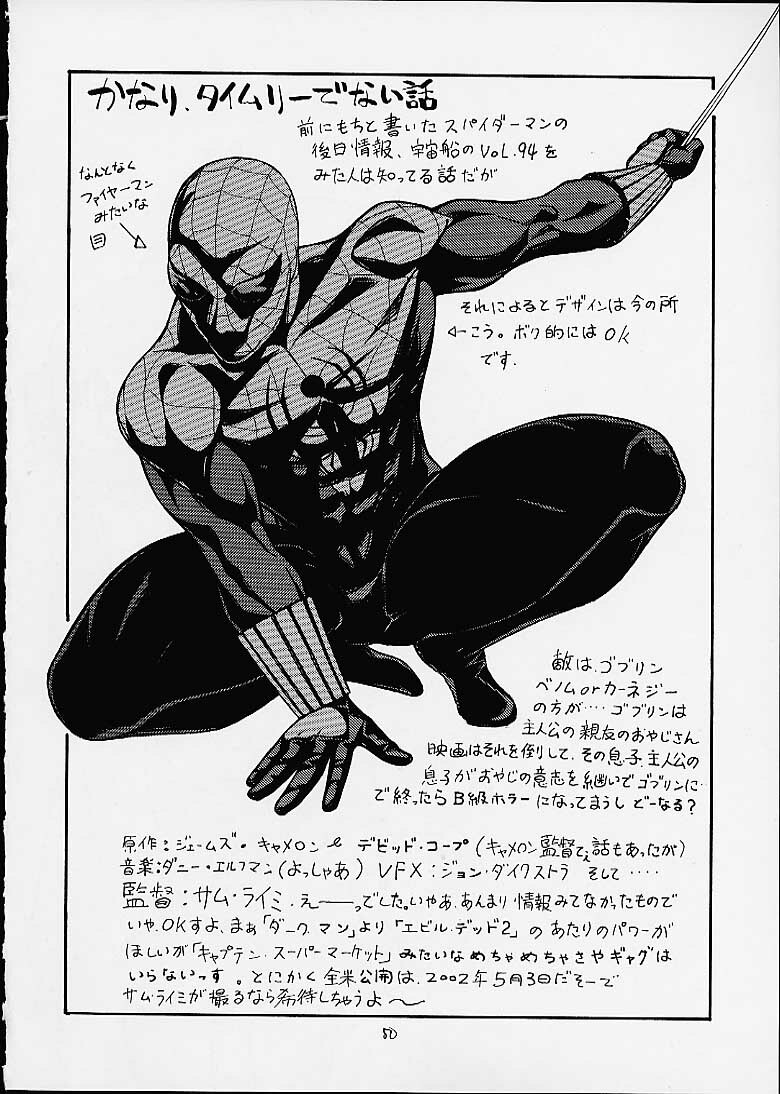 かなり、タイムリーでない話
前にもちと書いたスパイダーマンの
後日情報、宇宙船のVOL.94を
みた人は知ってる話だが
なんとなく
ファイヤーマン
みたいな
目
それによるとデザインは今の所
←こう。ボク的にはOK
です.
敵は、ゴブリン
ベノムorカーネジー
の方が‥‥ゴブリンは
主人公の親友のおやじさん
映画はそれを倒して、その息子、主人公の
息子がおやじの意志を継いでゴブリンに‥
で終ったらB級ホラーになってまうしどーなる?
原作:ジェームズ・キャメロンとデビッド・コープ(キャメロン監督てぇ話もあったが)
音楽:ダニー・エルフマン(よっしゃあ)VFX:ジョン・ダイクストラ そして‥‥
監督:サム・ライミ、えーーっでした。いやぁ、あんまり情報みてなかったもので
いや、OKすよ、まぁ「ダークマン」より「エビル・デッド2」のあたりのパワーが
ほしいが「キャプテン・スーパーマーケット」みたいなめちゃめちゃさやギャグは
いらないっす。とにかく全米公開は、2002年5月3日だそーで
サム・ライミが撮るなら希待しちゃうよ〜
50